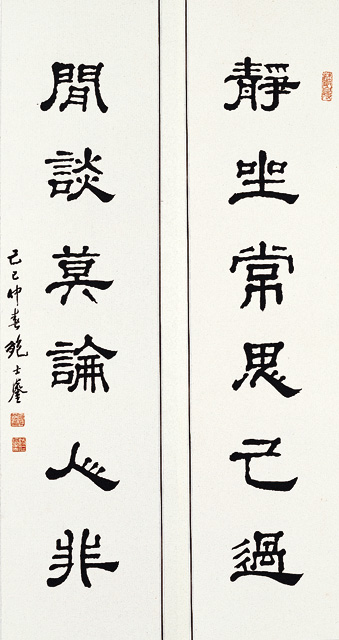 靜坐常思己過
閒談莫論人非
己巳仲春鮑士